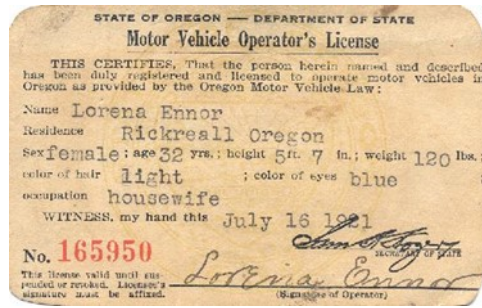 STATE OF OREGON — DEPARTMENT OF STATE
Motor Vehicle Operator's License
THIS CERTIFIES, That the person herein named and described
has been duly registered and licensed to operate motor vehicles in
Oregon as provided by the Oregon Motor Vehicle Law:
Name Lorena Ennor
Residence Rickreall Oregon
Sex female; age 32 yrs.; height 5 ft. 7 in.; weight 120 lbs.;
color of hair light ; color of eyes blue ;
occupation housewife
WITNESS, my hand this July 16 1921
SECRETARY OF STATE
No. 165950
This license valid until sus-
pended or revoked. Licensee's
signature must be affixed.
Lorena Ennor
(Signature of Operator)